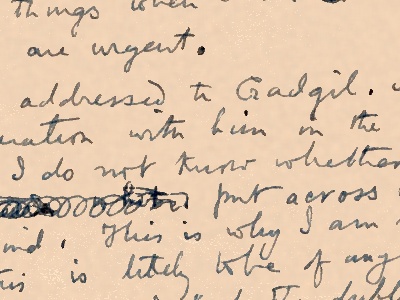 things when
are urgent.
addressed to Gadgil.
with him in the
I do not know whether
put across
This is why I am
is likely to be of any